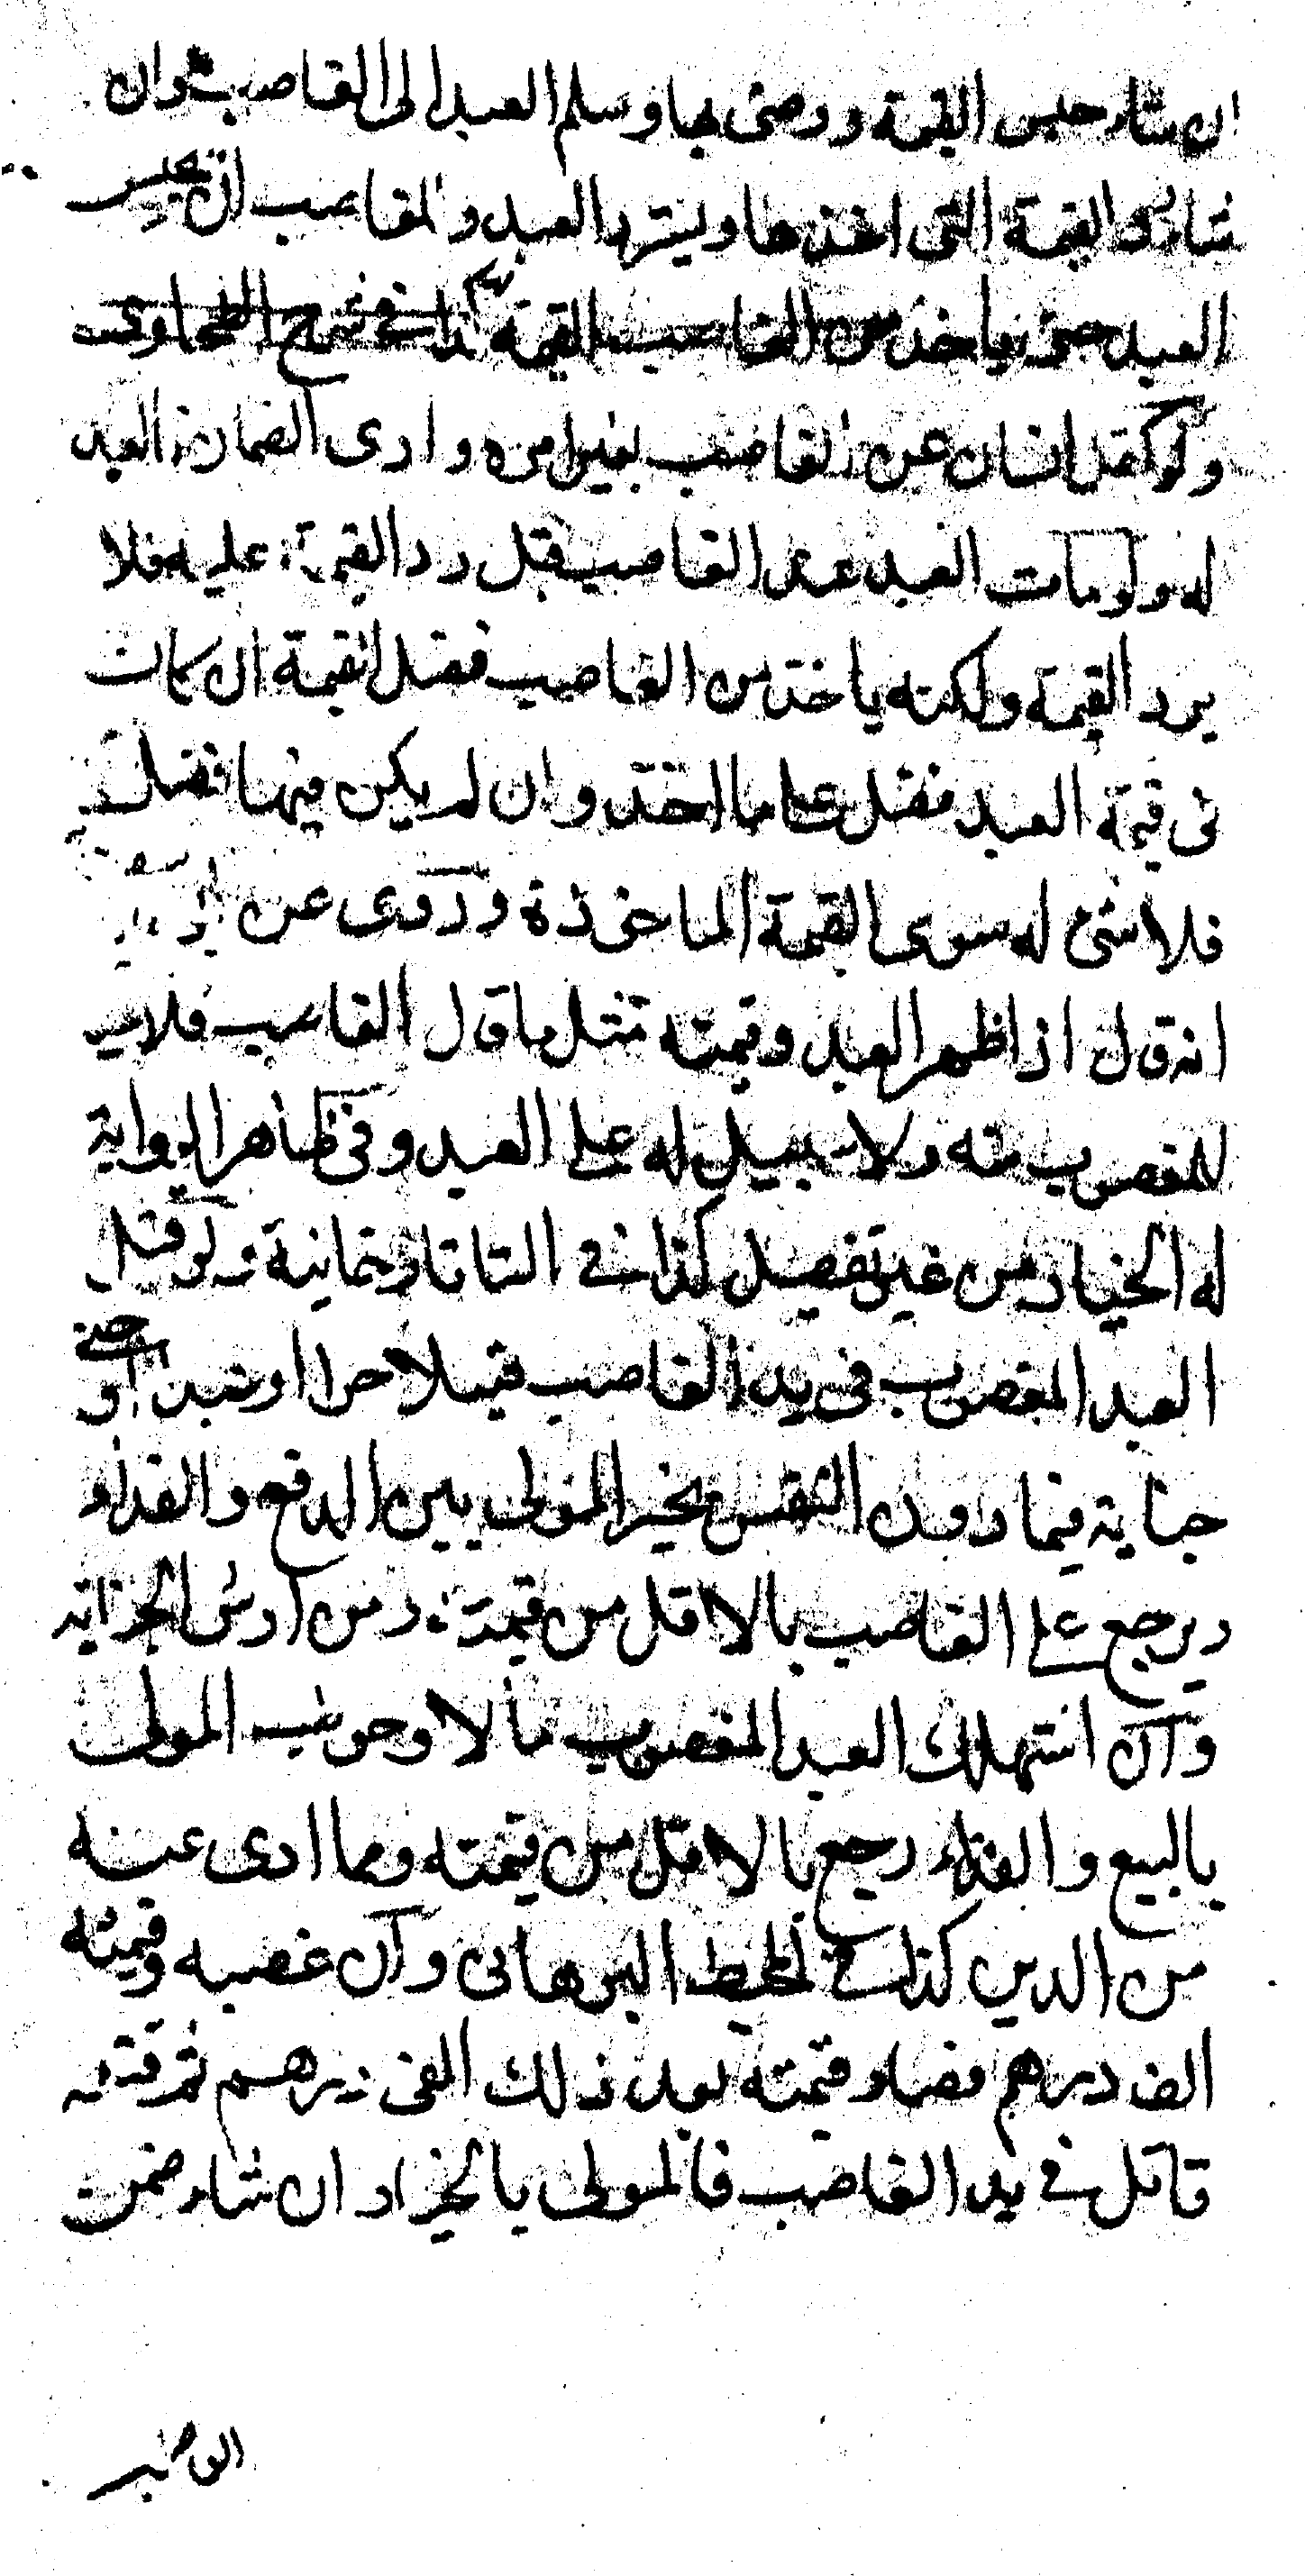 ان شاء حبس القيمة ورضى بها وسلم العبد الى الغاصب وان
شاء رد القيمة التى اخذها ويسترد العبد وللغاصب ان يحبس
العبد حتى ياخذ من الغاصب القيمة كذا فى شرح الطحاوى
ولو كفل انسان عن الغاصب بغير امره وادى الضمان العبد
له ولو مات العبد عند الغاصب قبل رد القيمة عليه فلا
يرد القيمة ولكنه ياخذ من الغاصب فضل القيمة ان كان
فى قيمة العبد فضل على ما اخذ وان لم يكن فيها فضل
فلا شئ له سوى القيمة الماخوذة وروى عن
انه قال اذا ظهر العبد وقيمته مثل ما قال الغاصب فلا
للمغصوب منه ولا سبيل له على العبد وفى ظاهر الرواية
له الخيار من غير تفصيل كذا فى التاتارخانية ولو قتل
العبد المغصوب فى يد الغاصب قتيلا حرا او عبدا او جنى
جناية فيما دون النفس يخير المولى بين الدفع والفداء
ويرجع على الغاصب بالاقل من قيمته ومن ارش الجناية
وان استهلك العبد المغصوب مالا وخوطب المولى
بالبيع والفداء رجع بالاقل من قيمته ومما ادى عنه
من الدين كذا فى المحيط البرهانى وان غصبه وقيمته
الف درهم فصار قيمته بعد ذلك الفى درهم ثم قتله
قاتل فى يد الغاصب فالمولى بالخيار ان شاء ضمن